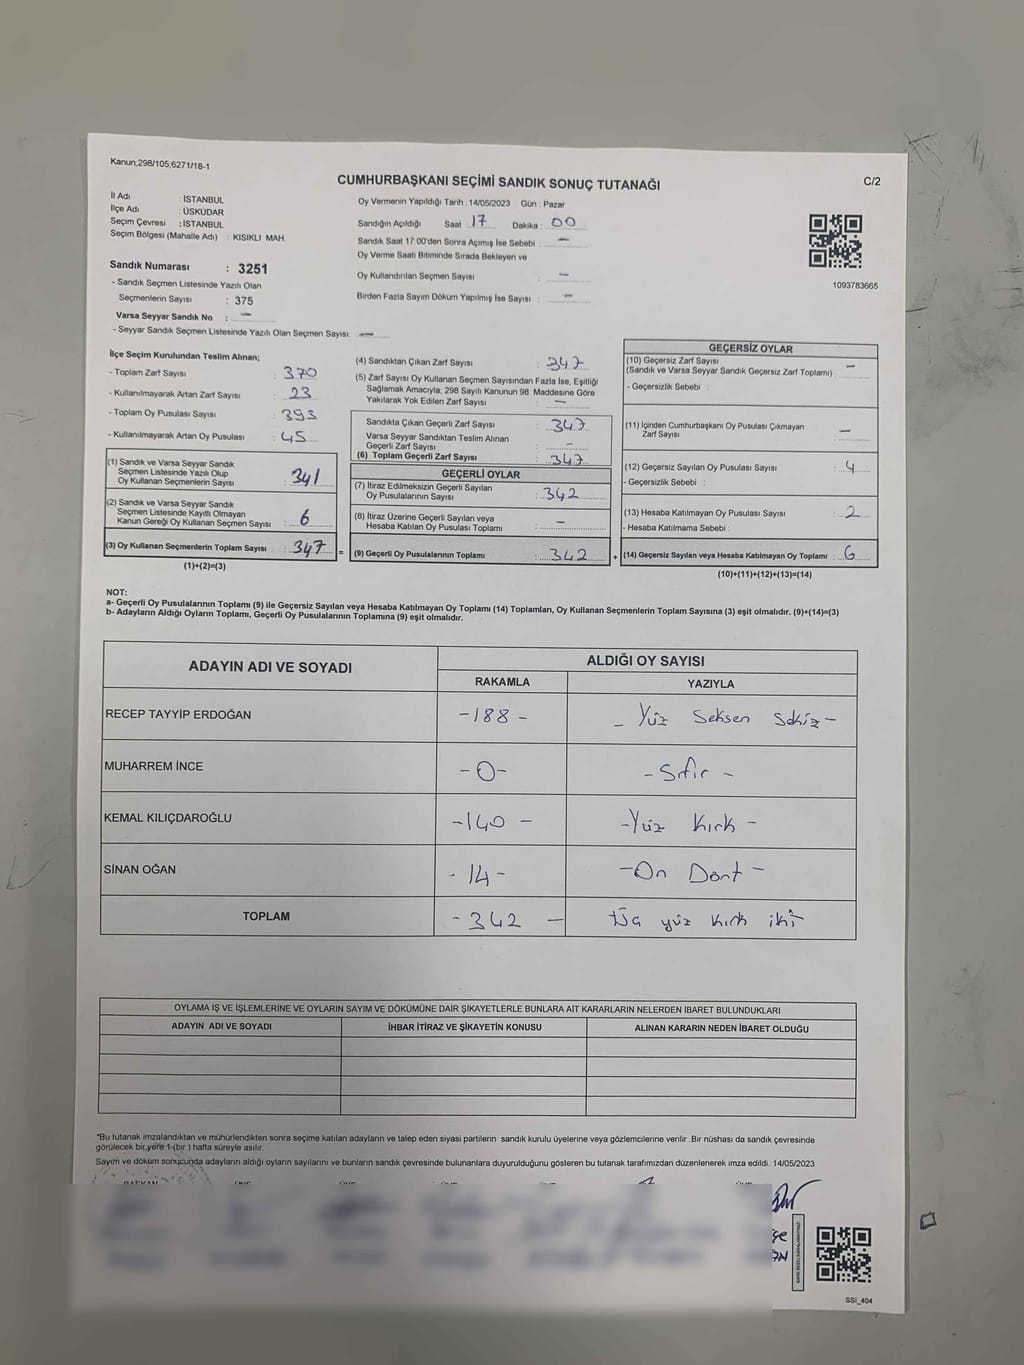 Kanun;298/105;6271/18-1
CUMHURBAŞKANI SEÇİMİ SANDIK SONUÇ TUTANAĞI
C/2
İl Adı : İSTANBUL
İlçe Adı : ÜSKÜDAR
Seçim Çevresi : İSTANBUL
Seçim Bölgesi (Mahalle Adı) : KISIKLI MAH.
Sandık Numarası : 3251
- Sandık Seçmen Listesinde Yazılı Olan
Seçmenlerin Sayısı : 375
Varsa Seyyar Sandık No : —
- Seyyar Sandık Seçmen Listesinde Yazılı Olan Seçmen Sayısı: —
Oy Vermenin Yapıldığı Tarih : 14/05/2023 Gün : Pazar
Sandığın Açıldığı Saat : 17 Dakika : 00
Sandık Saat 17:00'den Sonra Açımış İse Sebebi : —
Oy Verme Saati Bitiminde Sırada Bekleyen ve
Oy Kullandırılan Seçmen Sayısı : —
Birden Fazla Sayım Döküm Yapılmış İse Sayısı : —
1093783665
İlçe Seçim Kurulundan Teslim Alınan;
- Toplam Zarf Sayısı : 370
- Kullanılmayarak Artan Zarf Sayısı : 23
- Toplam Oy Pusulası Sayısı : 393
- Kullanılmayarak Artan Oy Pusulası : 45
(1) Sandık ve Varsa Seyyar Sandık
Seçmen Listesinde Yazılı Olup
Oy Kullanan Seçmenlerin Sayısı : 341
(2) Sandık ve Varsa Seyyar Sandık
Seçmen Listesinde Kayıtlı Olmayan
Kanun Gereği Oy Kullanan Seçmen Sayısı : 6
(3) Oy Kullanan Seçmenlerin Toplam Sayısı : 347
(1)+(2)=(3)
(4) Sandıktan Çıkan Zarf Sayısı : 347
(5) Zarf Sayısı Oy Kullanan Seçmen Sayısından Fazla İse, Eşitliği
Sağlamak Amacıyla; 298 Sayılı Kanunun 98. Maddesine Göre
Yakılarak Yok Edilen Zarf Sayısı : —
Sandıkta Çıkan Geçerli Zarf Sayısı : 347
Varsa Seyyar Sandıktan Teslim Alınan
Geçerli Zarf Sayısı : -
(6) Toplam Geçerli Zarf Sayısı : 347
GEÇERLİ OYLAR
(7) İtiraz Edilmeksizin Geçerli Sayılan
Oy Pusulalarının Sayısı : 342
(8) İtiraz Üzerine Geçerli Sayılan veya
Hesaba Katılan Oy Pusulası Toplamı : —
= (9) Geçerli Oy Pusulalarının Toplamı : 342
GEÇERSİZ OYLAR
(10) Geçersiz Zarf Sayısı
(Sandık ve Varsa Seyyar Sandık Geçersiz Zarf Toplamı) : —
- Geçersizlik Sebebi :
(11) İçinden Cumhurbaşkanı Oy Pusulası Çıkmayan
Zarf Sayısı : —
(12) Geçersiz Sayılan Oy Pusulası Sayısı : 4
- Geçersizlik Sebebi :
(13) Hesaba Katılmayan Oy Pusulası Sayısı : 2
- Hesaba Katılmama Sebebi :
+ (14) Geçersiz Sayılan veya Hesaba Katılmayan Oy Toplamı : 6
(10)+(11)+(12)+(13)=(14)
NOT:
a- Geçerli Oy Pusulalarının Toplamı (9) ile Geçersiz Sayılan veya Hesaba Katılmayan Oy Toplamı (14) Toplamları, Oy Kullanan Seçmenlerin Toplam Sayısına (3) eşit olmalıdır. (9)+(14)=(3)
b- Adayların Aldığı Oyların Toplamı, Geçerli Oy Pusulalarının Toplamına (9) eşit olmalıdır.
ADAYIN ADI VE SOYADI ALDIĞI OY SAYISI
RAKAMLA YAZIYLA
RECEP TAYYİP ERDOĞAN -188- - Yüz Seksen Sekiz -
MUHARREM İNCE -0- - Sıfır -
KEMAL KILIÇDAROĞLU -140- - Yüz Kırk -
SİNAN OĞAN -14- - On Dört -
TOPLAM -342- Üç yüz kırk iki
OYLAMA İŞ VE İŞLEMLERİNE VE OYLARIN SAYIM VE DÖKÜMÜNE DAİR ŞİKAYETLERLE BUNLARA AİT KARARLARIN NELERDEN İBARET BULUNDUKLARI
ADAYIN ADI VE SOYADI İHBAR İTİRAZ VE ŞİKAYETİN KONUSU ALINAN KARARIN NEDEN İBARET OLDUĞU
*Bu tutanak imzalandıktan ve mühürlendikten sonra seçime katılan adayların ve talep eden siyasi partilerin sandık kurulu üyelerine veya gözlemcilerine verilir. Bir nüshası da sandık çevresinde
görülecek bir yere 1 (bir ) hafta süreyle asılır.
Sayım ve döküm sonucunda adayların aldığı oyların sayılarını ve bunların sandık çevresinde bulunanlara duyurulduğunu gösteren bu tutanak tarafımızdan düzenlenerek imza edildi. 14/05/2023
SSI_404